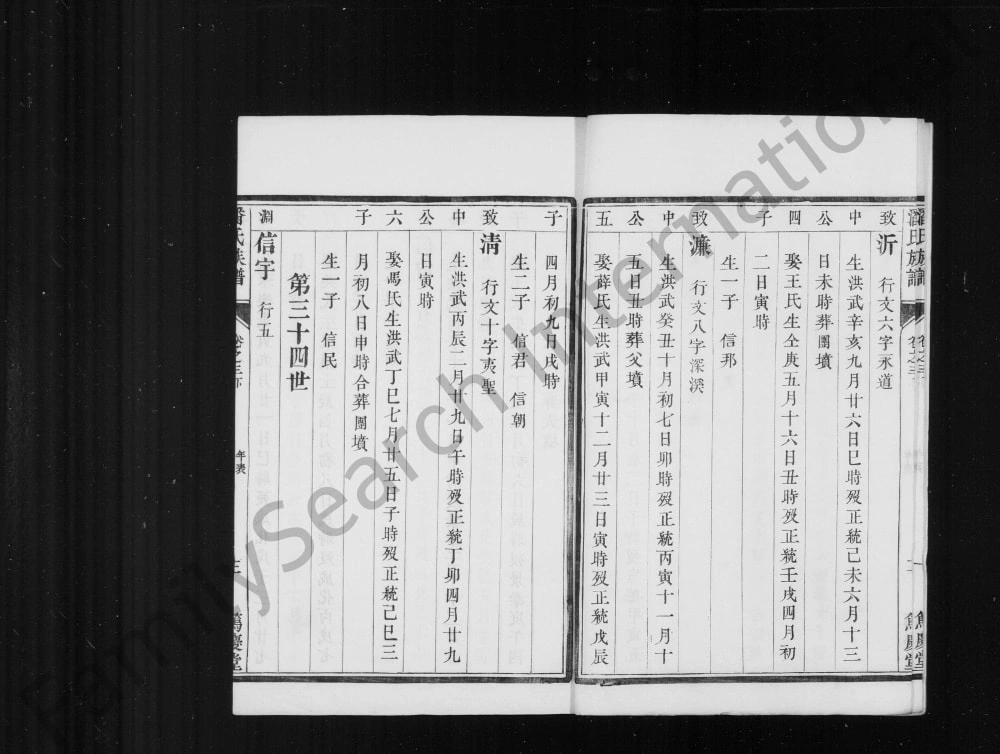 潘氏族譜 卷之三下
篤慶堂
致沂 行文六字永道
中 生洪武辛亥九月廿六日巳時歿正統己未六月十三
公 日未時葬團墳
四 娶王氏生仝庚五月十六日丑時歿正統壬戌四月初
子 二日寅時
生一子 信邦
致濂 行文八字深溪
中 生洪武癸丑十月初七日卯時歿正統丙寅十一月十
公 五日丑時葬父墳
五 娶薛氏生洪武甲寅十二月廿三日寅時歿正統戊辰
子 四月初九日戌時
生二子 信君 信朝
致清 行文十字夷聖
中 生洪武丙辰二月廿九日午時歿正統丁卯四月廿九
公 日寅時
六 娶馮氏生洪武丁巳七月廿五日子時歿正統己巳三
子 月初八日申時合葬團墳
生一子 信民
第三十四世
淵信宇 行五
潘氏族譜 卷之三下 年表 三 篤慶堂
FamilySearch International